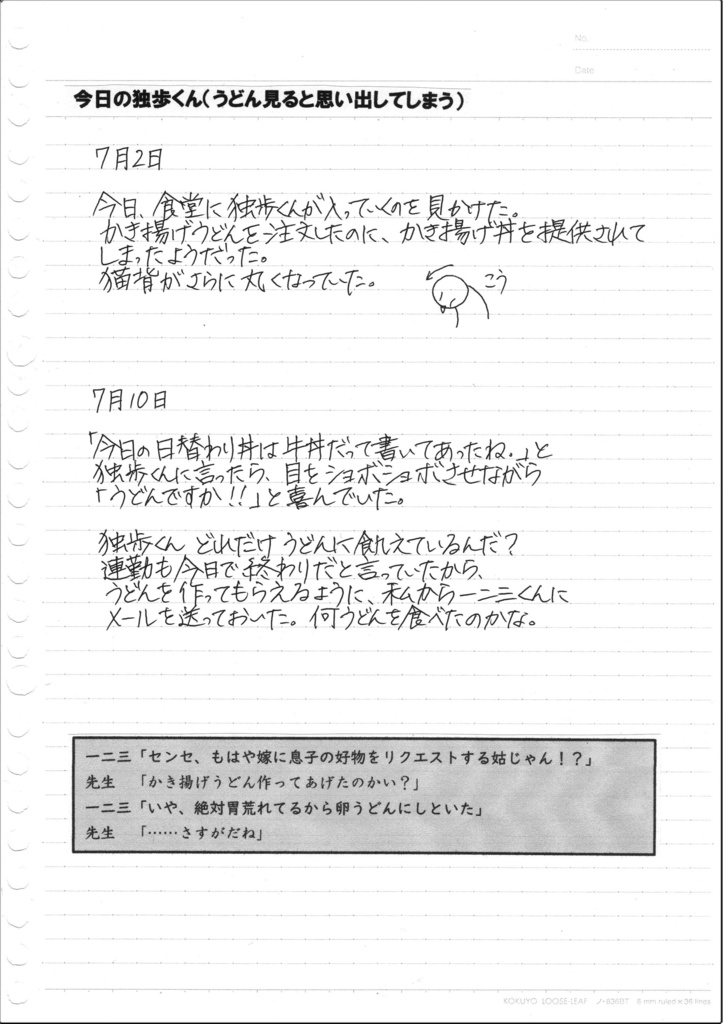 No.
Date
今日の独歩くん(うどん見ると思い出してしまう)
7月2日
今日、食堂に独歩くんが入っていくのを見かけた。
かき揚げうどんを注文したのに、かき揚げ丼を提供されて
しまったようだった。
猫背がさらに丸くなっていた。
こう
7月10日
「今日の日替わり丼は牛丼だって書いてあったね。」と
独歩くんに言ったら、目をショボショボさせながら
「うどんですか!!」と喜んでいた。
独歩くん どれだけうどんに飢えているんだ?
連勤も今日で終わりだと言っていたから、
うどんを作ってもらえるように、私から一二三くんに
メールを送っておいた。何うどんを食べたのかな。
一二三「センセ、もはや嫁に息子の好物をリクエストする姑じゃん!?」
先生 「かき揚げうどん作ってあげたのかい?」
一二三「いや、絶対胃荒れてるから卵うどんにしといた」
先生 「……さすがだね」
KOKUYO LOOSE-LEAF ノ-836BT 6 mm ruled × 36 lines